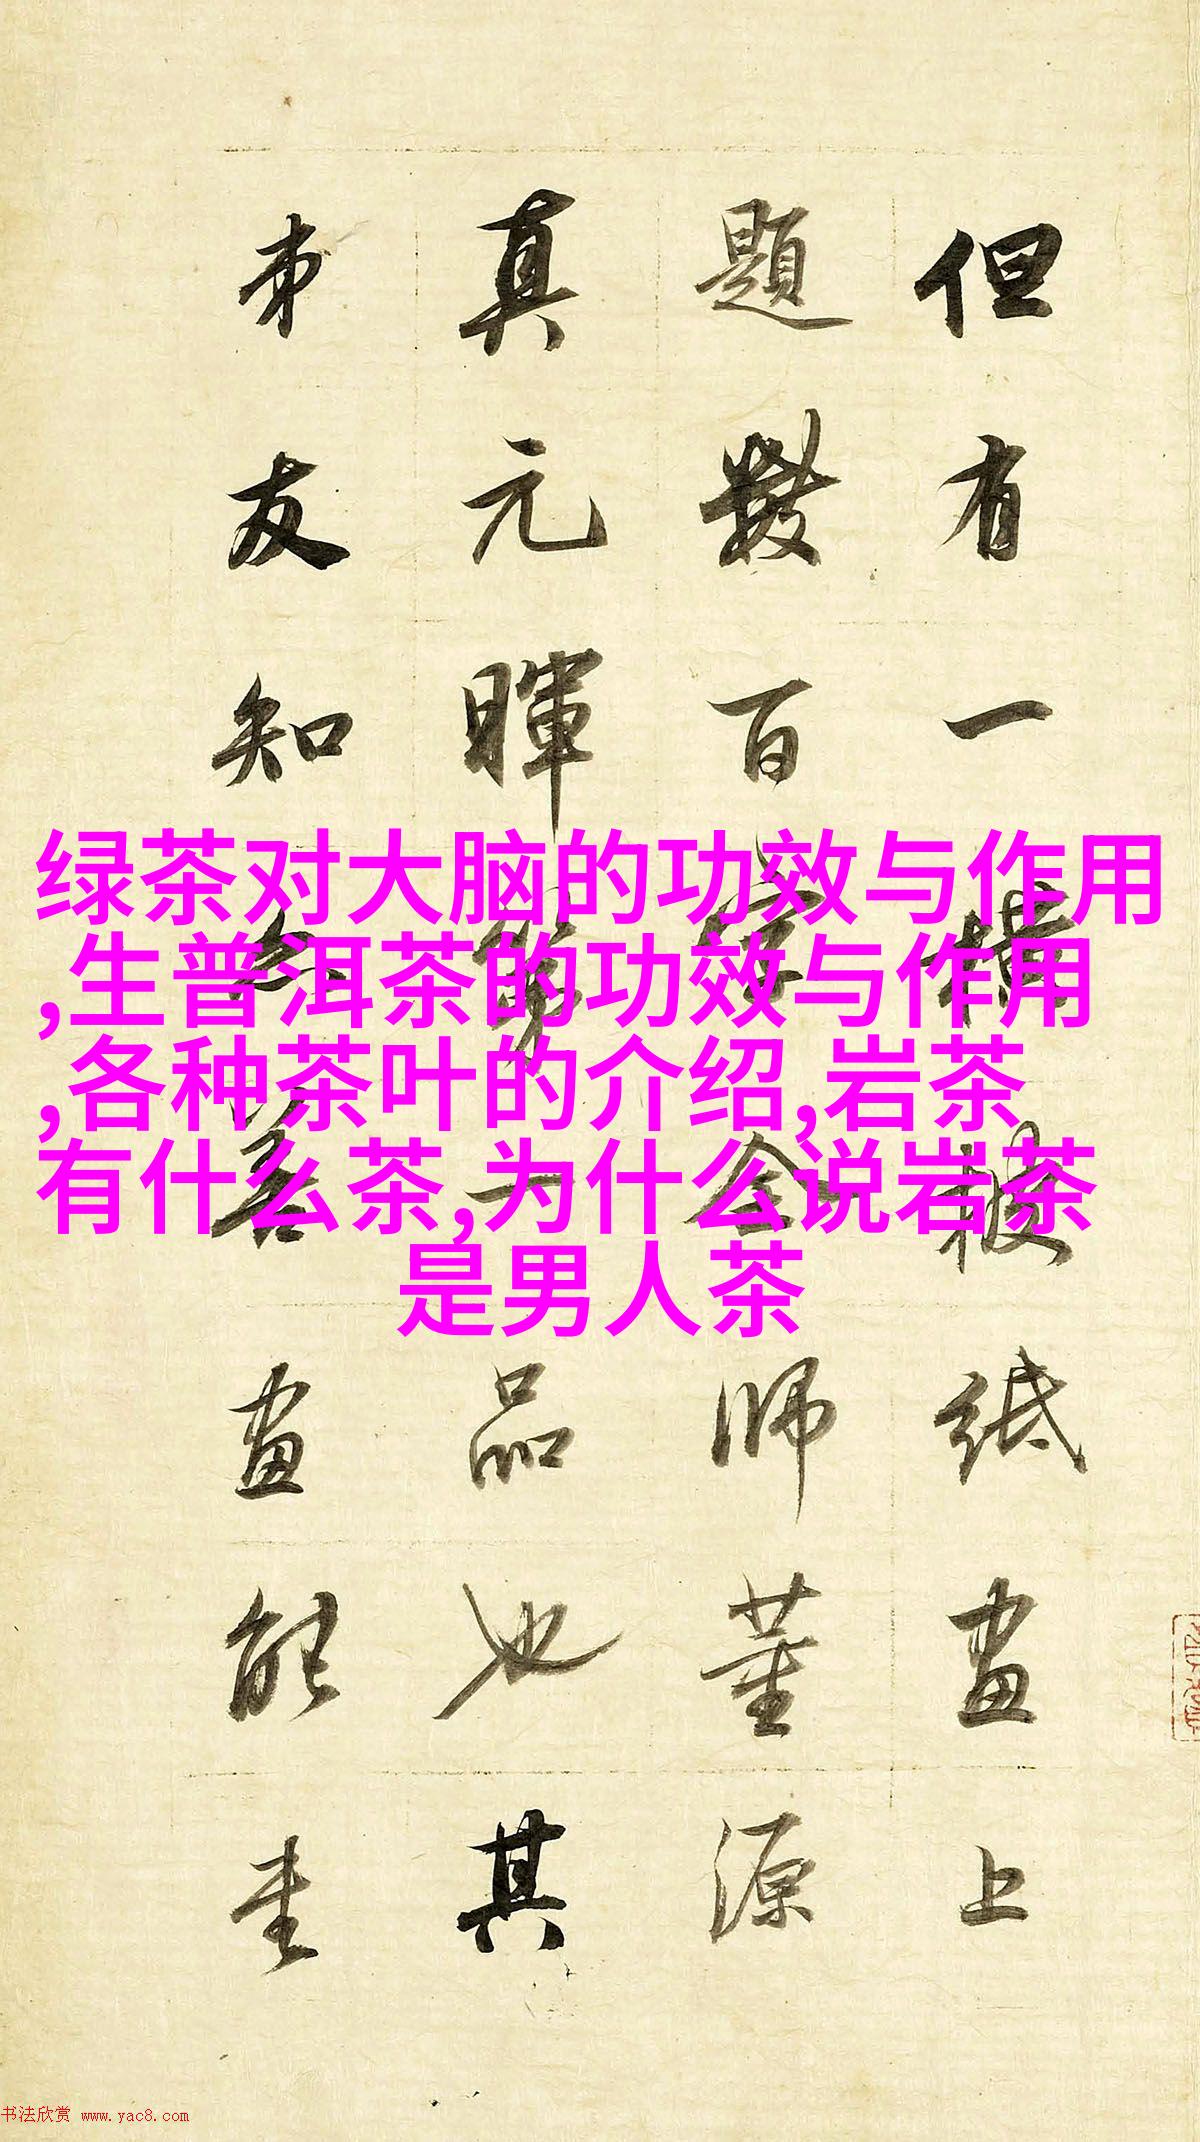 但有一横披纸画上
題數百字全師董源
真元暉第一品也其
弟友知
畫能
绿茶对大脑的功效与作用
,生普洱茶的功效与作用
,各种茶叶的介绍,岩茶
有什么茶,为什么说岩茶
是男人茶
书法欣赏 www.yac8.com